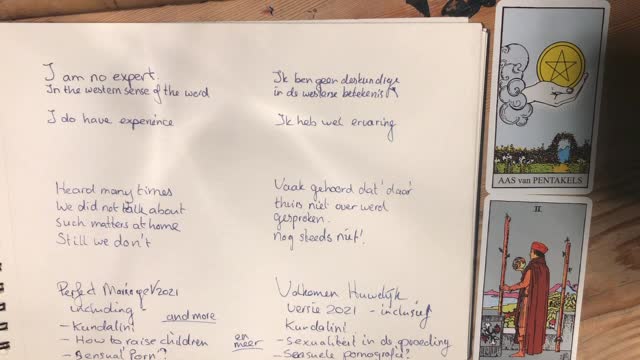 I am no expert.
In the western sense of the word
I do have experience
Heard many times
We did not talk about
such matters at home
Still we don't
Perfect Marriage V2021
including
and more
- Kundalini
- How to raise children
- Sensual Porn?
Ik ben geen deskundige
in de westerse betekenis
Ik heb wel ervaring
Vaak gehoord dat 'daar'
thuis niet over werd
gesproken.
Nog steeds niet!
Volkomen Huwelijk
versie 2021 - inclusief
Kundalini
en
meer
- sexualiteit in de opvoeding
- Sensuele pornografie?
AAS van PENTAKELS
II